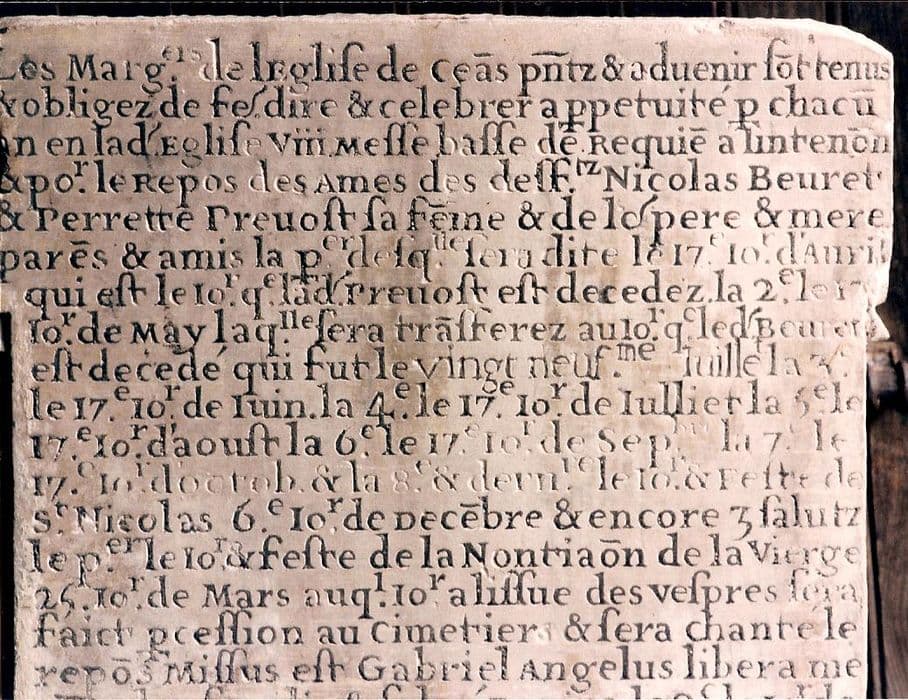 Les Marg.ers de lEgliſe de Ceās pn̄tz & aduenir ſōt tenus
& obligez de feſ dire & celebrer appetuité p chacū
an en lad Egliſe Viii Meſſe baſſe dē Requiē a lintenōn
& po.r le Repos des Ames des deff.tz Nicolas Beuret
& Perrette Preuoſt ſa fēme & de loſ pere & mere
parēs & amis la p.er deſq.lles ſera dite le 17.e Io.r d'Auril
qui eſt le Io.r q.e lad Preuoſt eſt decedez la 2.e le 17
Io.r de May laq.lle ſera trāſferez au Io.r q.e led Beuret
eſt decedé qui fut le vingt neuf.me Iuille la 3.e
le 17.e Io.r de Iuin. la 4.e le 17.e Io.r de Iullier la 5.e le
17.e Io.r d'aouſt la 6.e le 17.e Io.r de Sep. la 7. le
17.e Io.r d'octob. & la 8.e & dern.re le Io.r & Feſte de
S.t Nicolas 6.e Io.r de Decēbre & encore 3 ſalutz
le p.er le Io.r & feſte de la Nontiaōn de la Vierge
25. Io.r de Mars auq.l Io.r a liſſue des veſpres ſera
faict pceſſion au Cimetier & ſera chante le
repōs Miſſus eſt Gabriel Angelus libera me